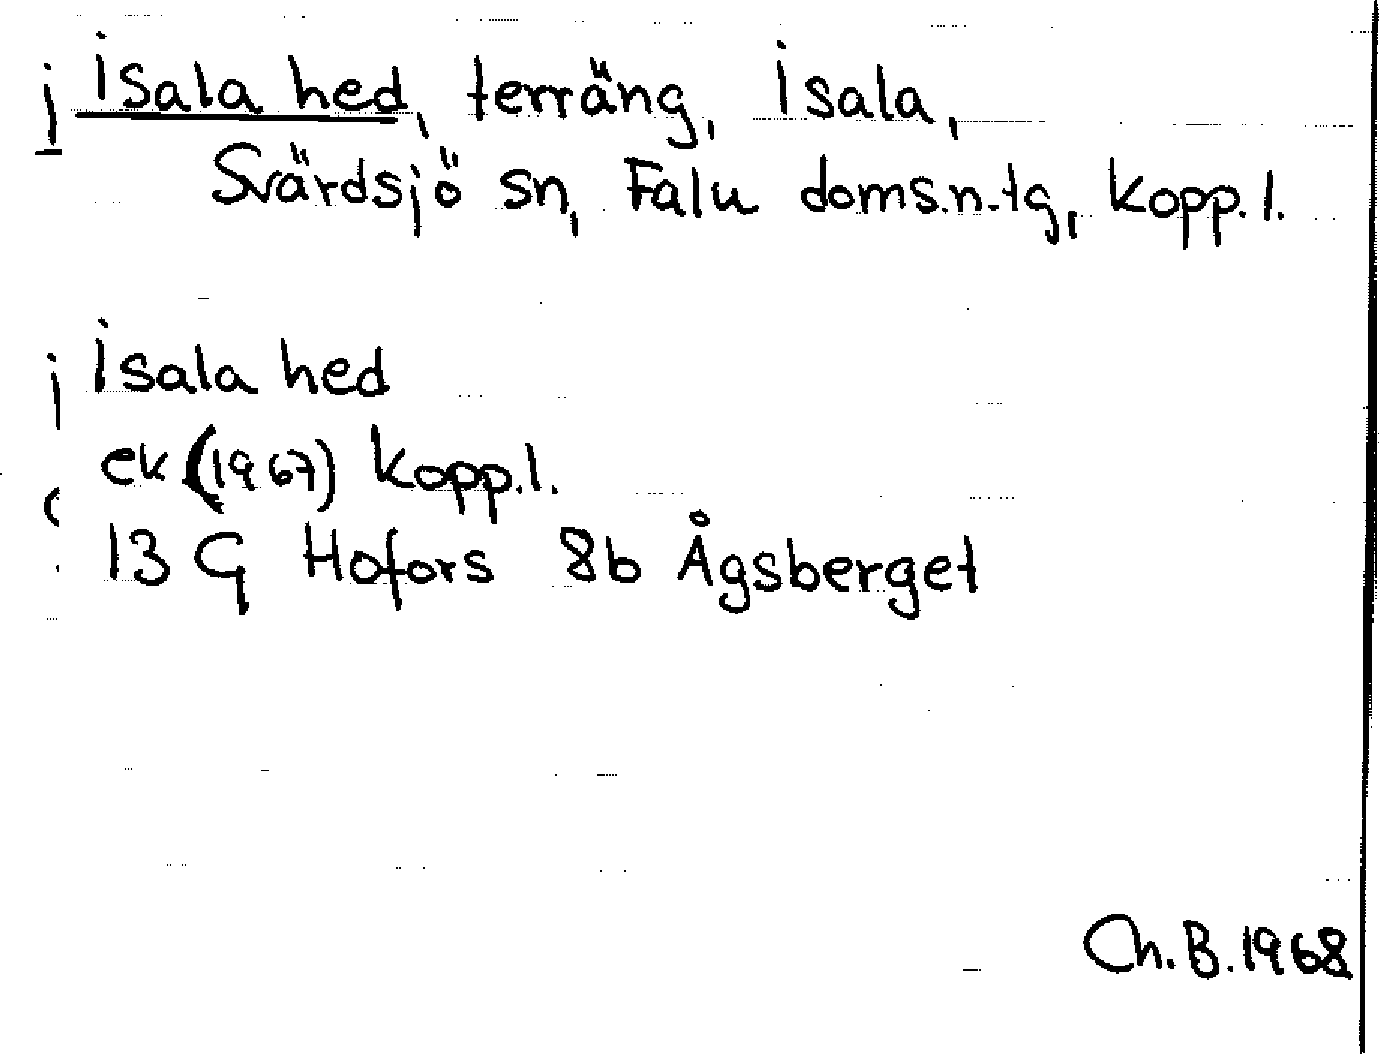 j Isala hed, terräng, Isala,
Svärdsjö sn, Falu doms.n.tg, Kopp.l.
j Isala hed
ek (1967) Kopp.l.
13 G Hofors 8b Ågsberget
Ch.B.1968